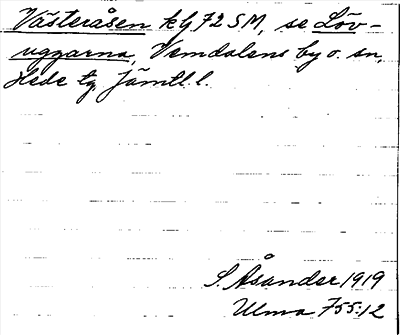 Västeråsen kg 72 SM, se Löv-
uggarna, Vemdalens by o. sn,
Hede tg Jämtl. l.
S. Åsander 1919
Ulma 755:12